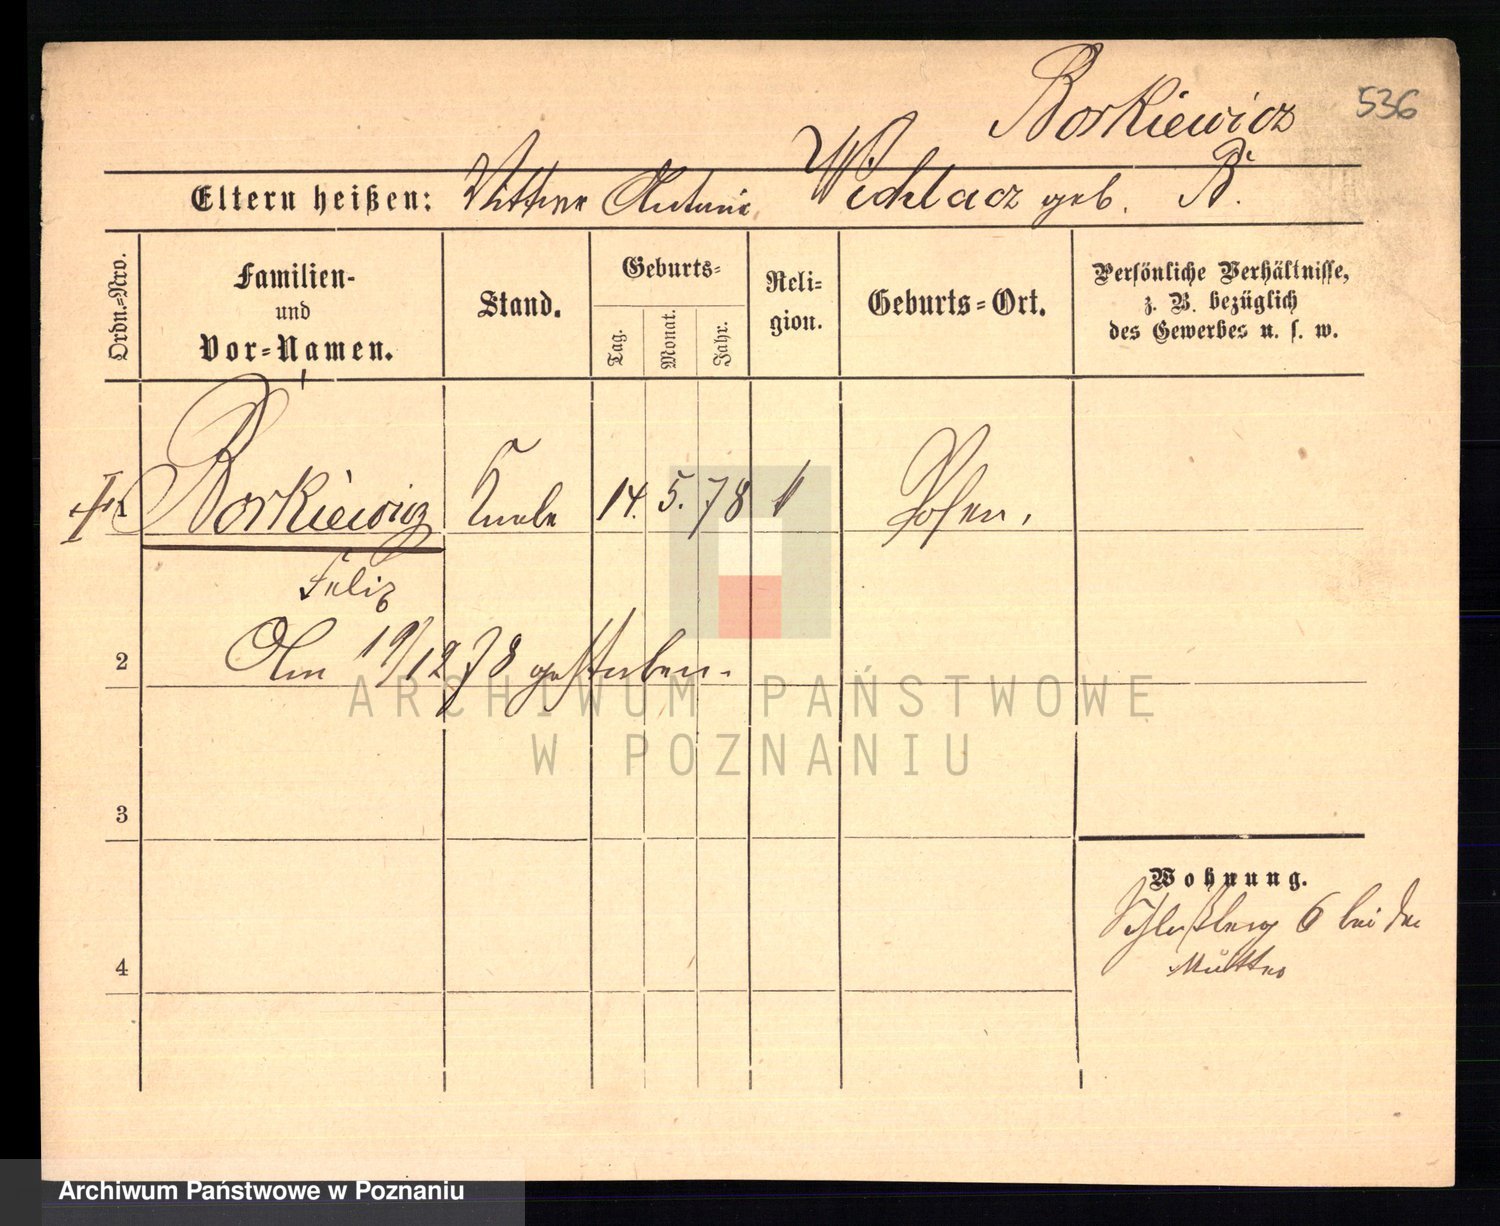 Borkiewicz
536
Eltern heißen: Wittwe Antonie Wichlacz geb. B.
Ordn.=Nro.
Familien-
und
Vor=Namen.
Stand.
Geburts=
Tag.
Monat.
Jahr.
Reli=
gion.
Geburts=Ort.
Persönliche Verhältnisse,
z. B. bezüglich
des Gewerbes u. s. w.
1 Borkiewicz Knabe 14. 5. 78 Posen.
Felix
2 Am 19/12 78 gestorben.
ARCHIWUM PAŃSTWOWE
W POZNANIU
3
Wohnung.
Schloßberg 6 bei der
Mutter
4
Archiwum Państwowe w Poznaniu